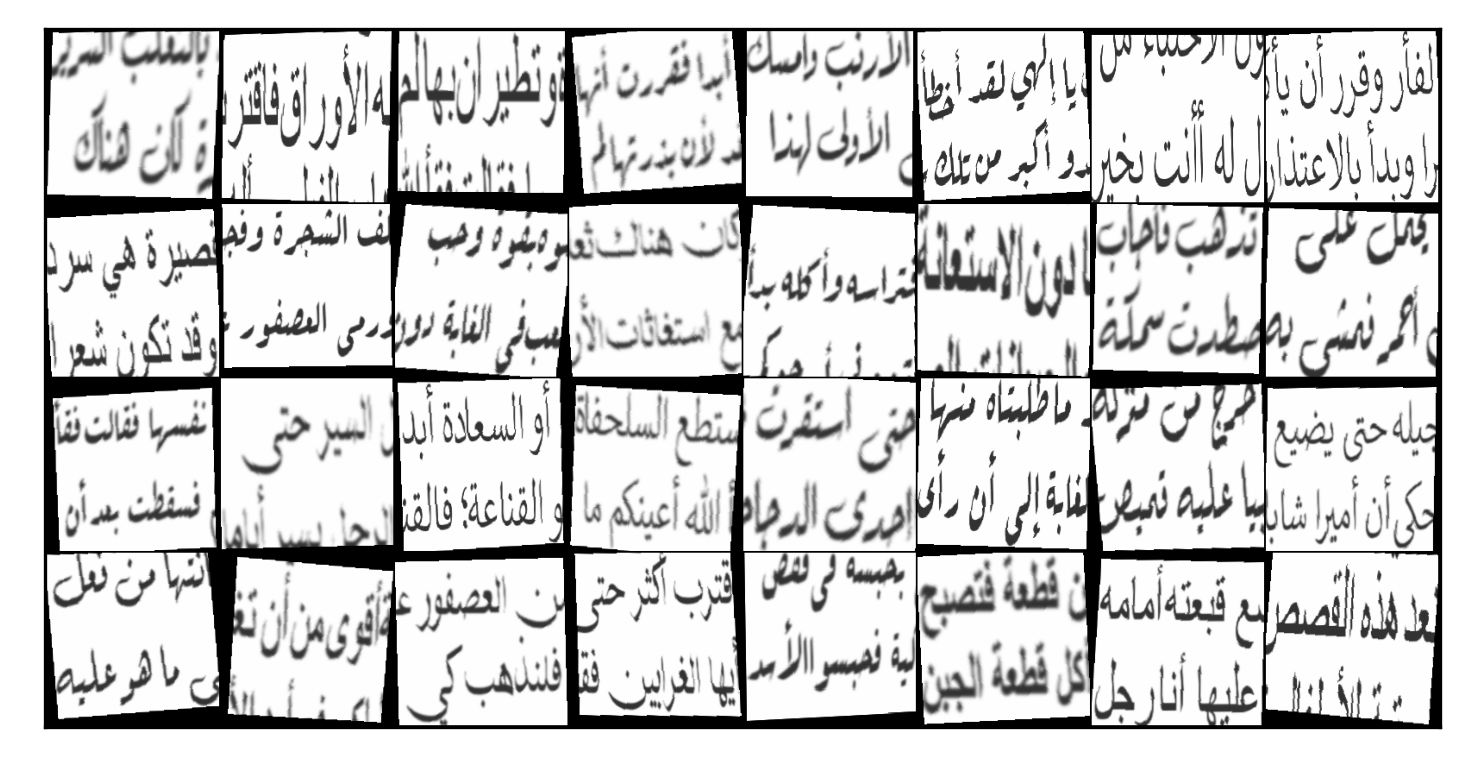 بالثعلب السرير
ة كان هناك
ـه الأوراق فاقتر
و تطير ان بها لم
أبدا فقررت أنها
ـد لأن بذرتها لم
الأرنب وامسك
الأولى لهذا
يا إلهي لقد أخطأ
ـدو أكبر من تلك
ون الأختباء من
ل له أأنت بخير
لفأر وقرر أن يأ
را وبدأ بالاعتذار
قصيرة هي سرد
وقد تكون شعرا
لف الشجرة وفجـ
ورمى العصفور
ـوه بقوة وحب
ـعب في الغابة دون
كان هناك ثعـ
ـع استغاثات الأر
ـتراسه وأكله بدأ
ـا دون الاستعانة
تذهب فأجاب
صطدت سمكة
يحمل على
أحمر فمشى به
نفسها فقالت فقأ
فسقطت بعد أن
ل السير حتى
الرجل يسير أياما
أو السعادة أبد
و القناعة؛ فالقنـ
ستطع السلحفاة
أ الله أعينكم ما
حتى استقرت
احدى الدجاجـ
ما طلبتاه منها
لغابة إلي أن رأى
خرج من منزله
ـيا عليه قميص
جيله حتى يضيع
حكى أن أميرا شابا
انتها من فعل
ى ما هو عليه
ـة أقوى من أن تغـ
ـن العصفور عـ
فلنذهب كي
قترب أكثر حتى
أيها الغرابين فقـ
بحبسه في قفص
لية فحبسوا الأسد
ـن قطعة فتصبح
أكل قطعة الجبن
ـع قبعته أمامه
عليها أنا رجل
تعد هذه القصص